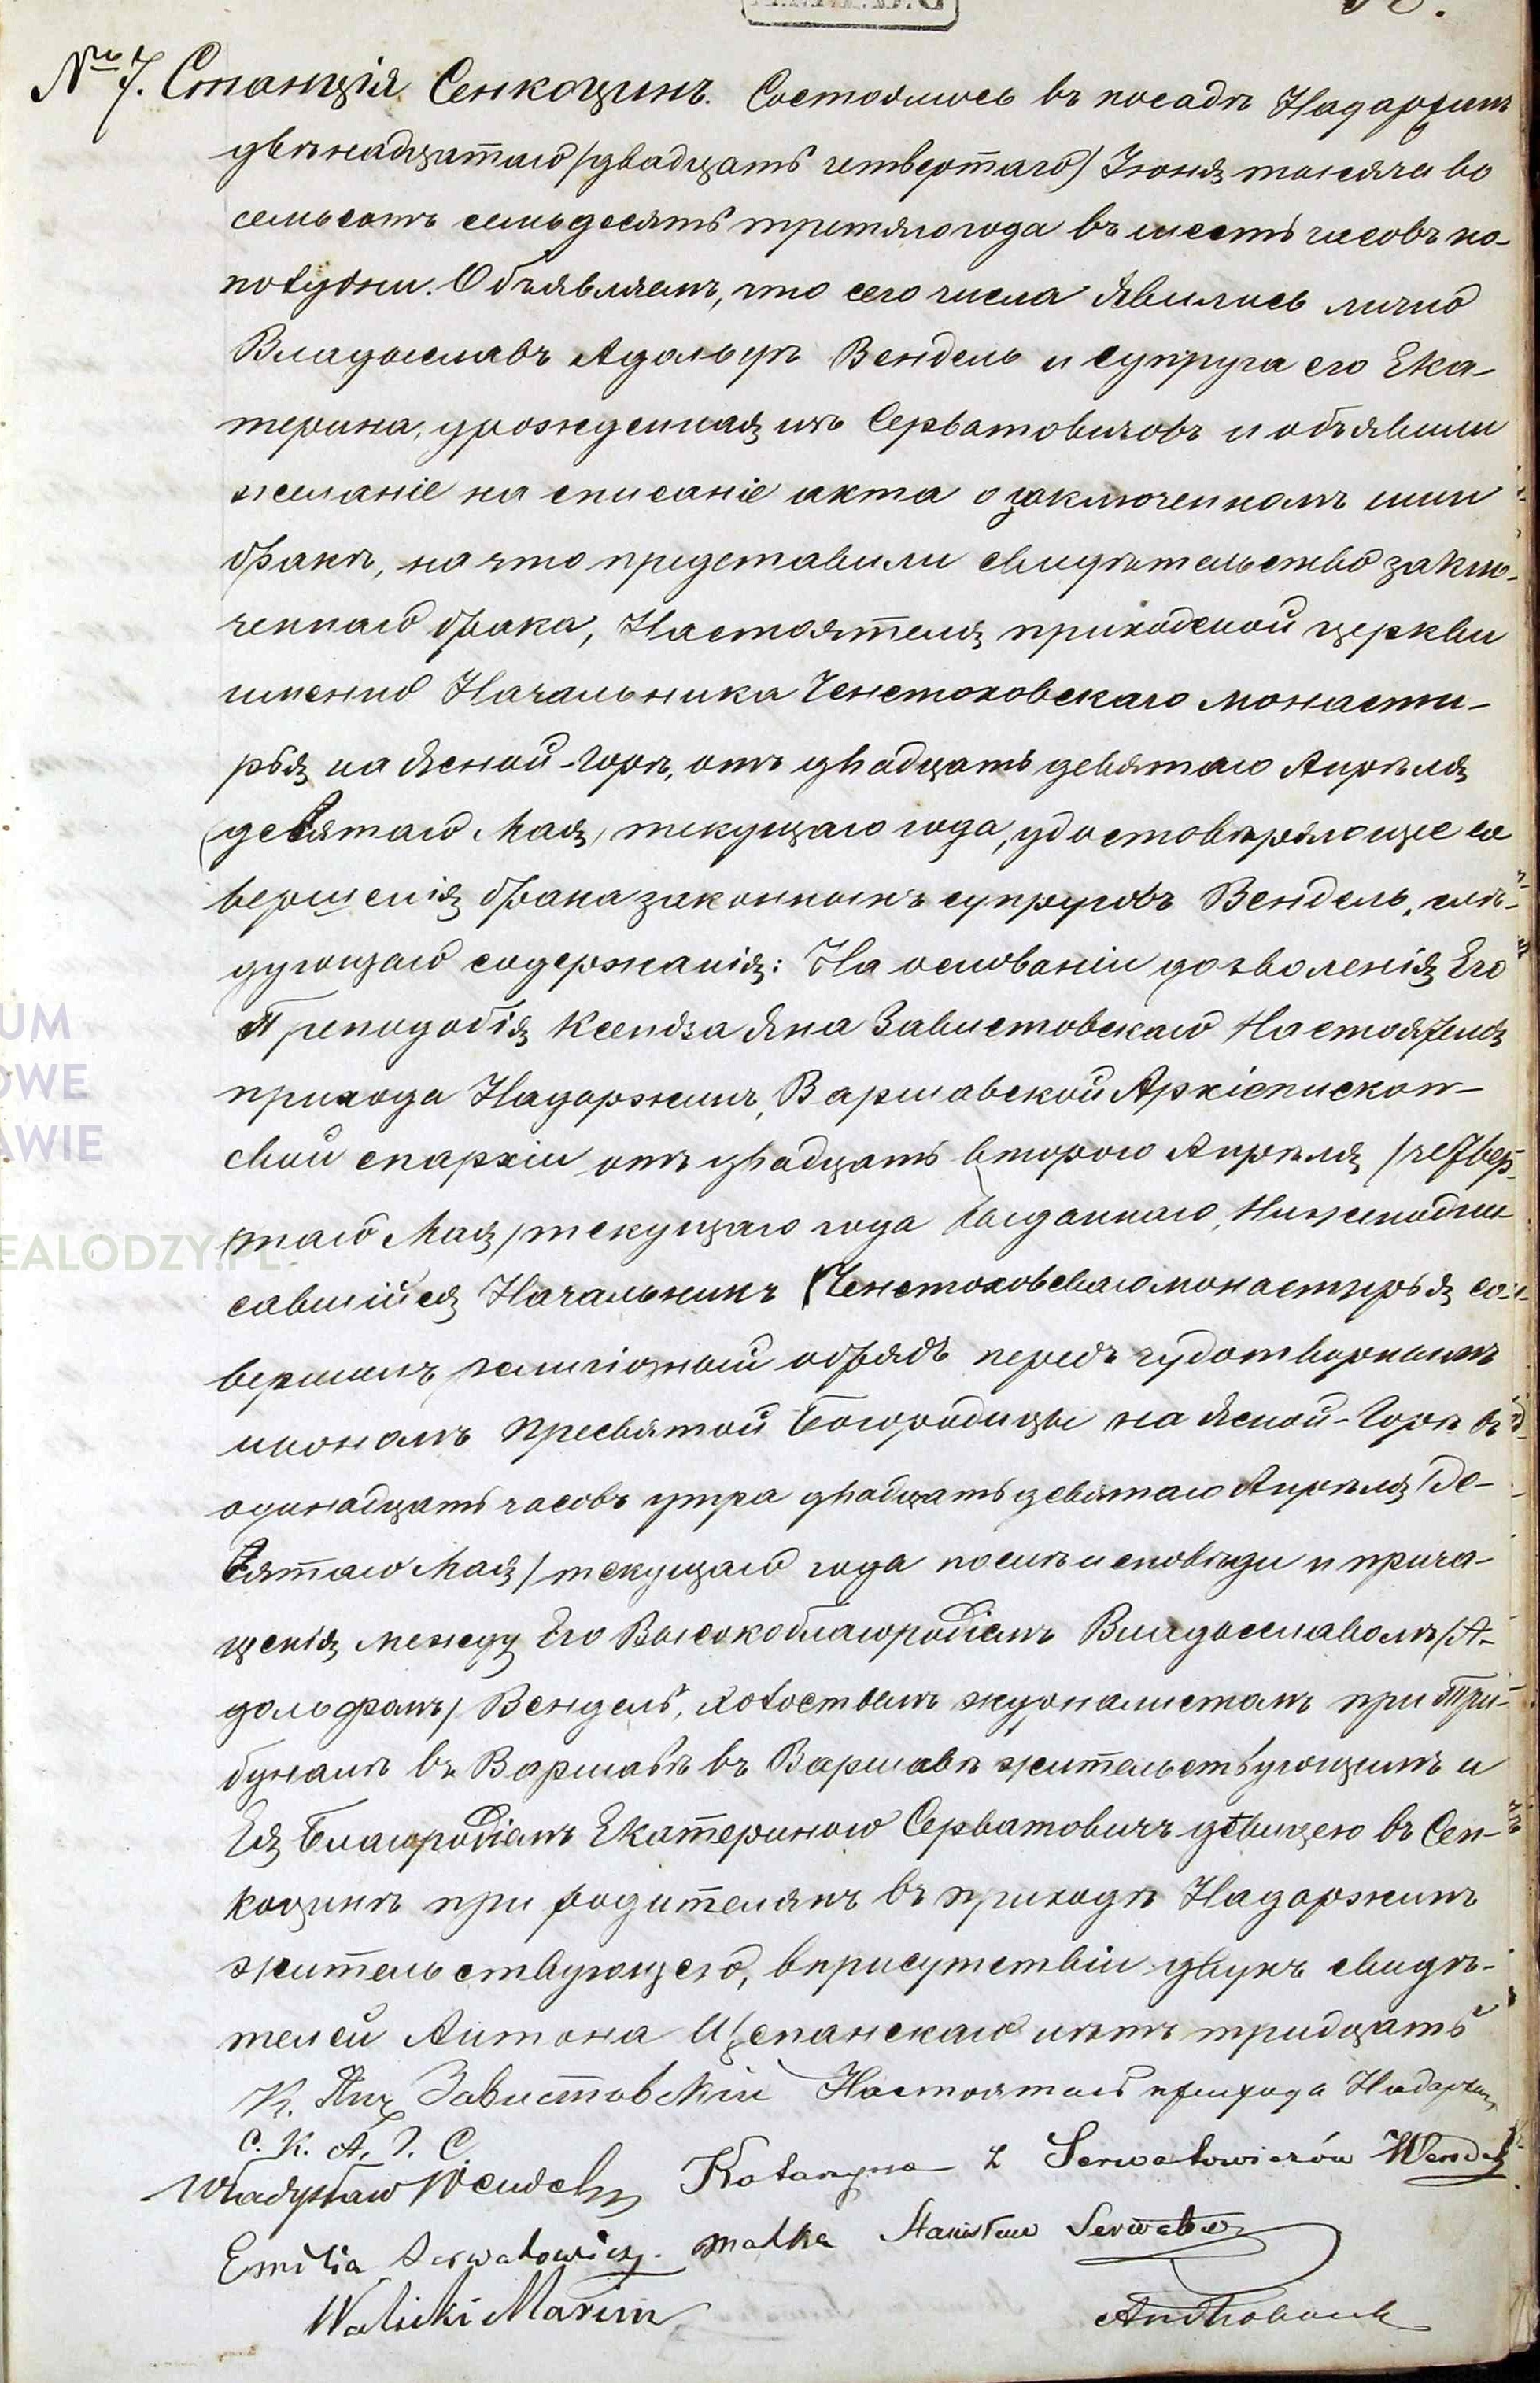 № 7. Станція Сенкоцинъ. Состоялось въ посадѣ Надаржинѣ
двѣнадцатаго /двадцать четвертаго/ Іюня тысяча во
семьсотъ семьдесятъ третяго года въ шесть часовъ по-
полудни. Объявляемъ, что сего числа явились лично
Владыславъ Адольфъ Вендель и супруга его Ека-
терина, урожденная изъ Серватовичовъ и объявили
желаніе на списаніе акта о заключенномъ ими
бракѣ, на что представили свидѣтельство заклю-
ченнаго брака, Настоятеля приходской церкви
именно Начальника Ченстоховскаго монасти-
рья на Ясной-Горѣ, отъ двадцать девятаго Апрѣля
(девятаго Мая, текущаго года, удостовѣряющее со
вершенія брака законныхъ супруговъ Вендель, слѣ-
дующаго содержанія: На основаніи дозволенія Его
Преподобія Ксендза Яна Завистовскаго Настоятеля
прихода Надаржинъ, Варшавской Архіепископ-
свой епархіи отъ двадцать второго Апрѣля /четвер-
таго Мая/ текущаго года выданнаго, Нижеподпи
савшійся Начальникъ Ченстоховскаго монастырья со-
вершилъ религіозный обрядъ передъ чудотворнымъ
иконамъ Пресвятой Богородицы на Ясной-Горѣ въ
одинадцать часовъ утра двадцать девятаго Апрѣля /де-
вятаго Мая/ текущаго года послѣ исповѣди и прича-
щенія между Его Высокоблагородіемъ Владыславомъ /А-
дольфомъ/ Вендель, холостымъ журналистомъ при Три-
буналѣ въ Варшавѣ въ Варшавѣ жительствующимъ и
Ея Благородіемъ Екатериною Серватовичъ дѣвицею въ Сен-
коцинѣ при родителяхъ въ приходѣ Надаржинъ
жительствующею, въ присутствіи двухъ свидѣ-
телей Антона Щепанскаго лѣтъ тридцать
К. Янъ Завистовскій Настоятель прихода Надаржинъ
С. К. А. Г. С.
Władysław Wendel Katarzyna z Serwatowiczów Wendel
Emilia Serwatowicz. matka Stanisław Serwatow
Walicki Marcin